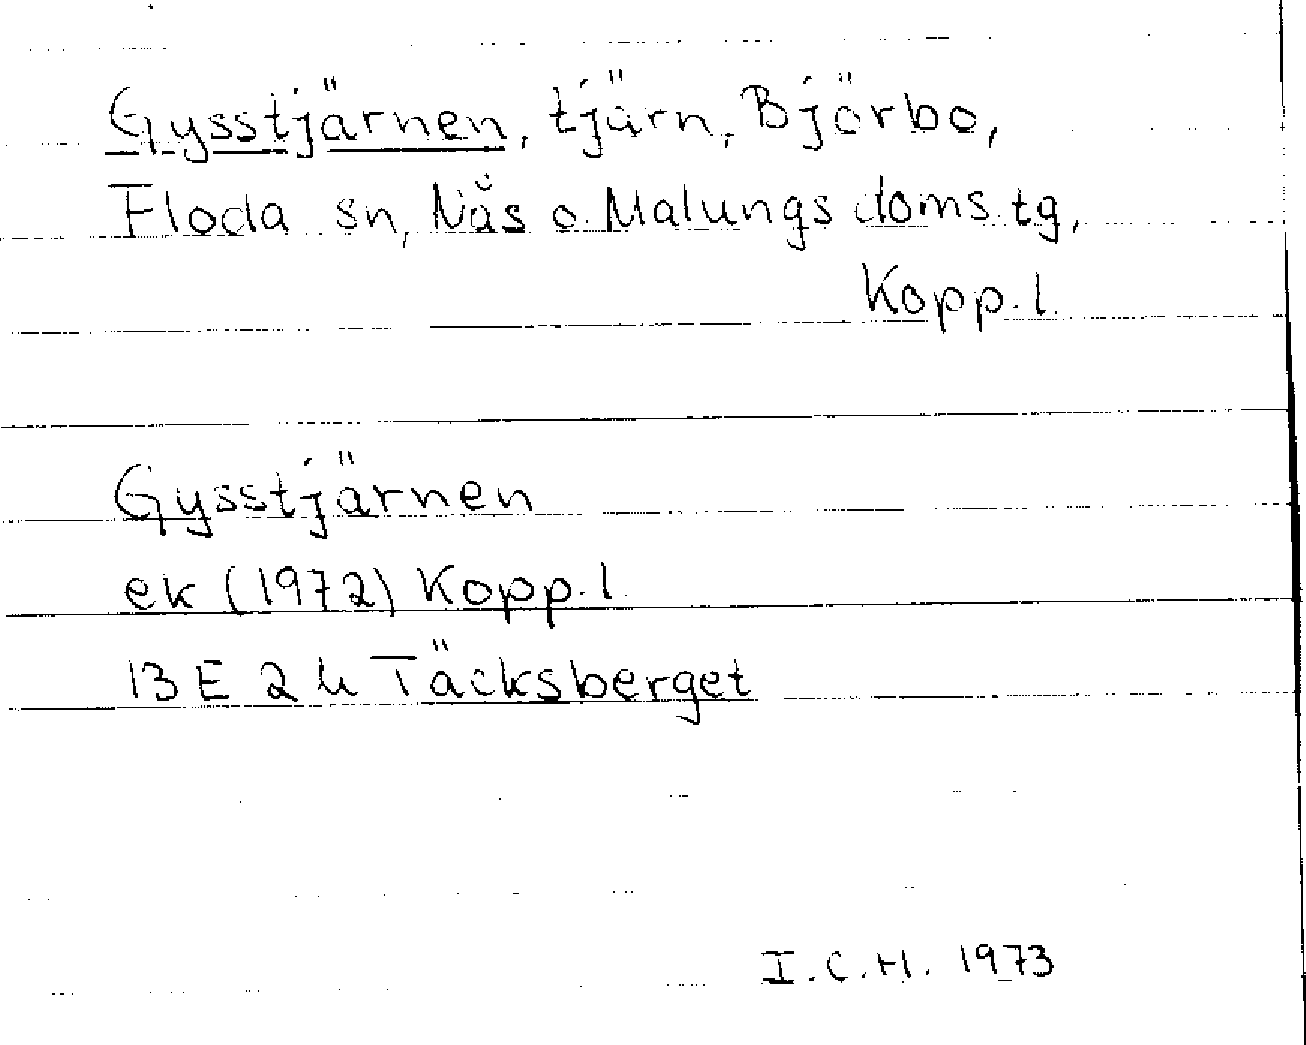 Gysstjärnen, tjärn, Björbo,
Floda sn, Nås o. Malungs doms.tg,
Kopp. l.
Gysstjärnen
ek (1972) Kopp. l.
13 E 2 h Täcksberget
I.C.H. 1973